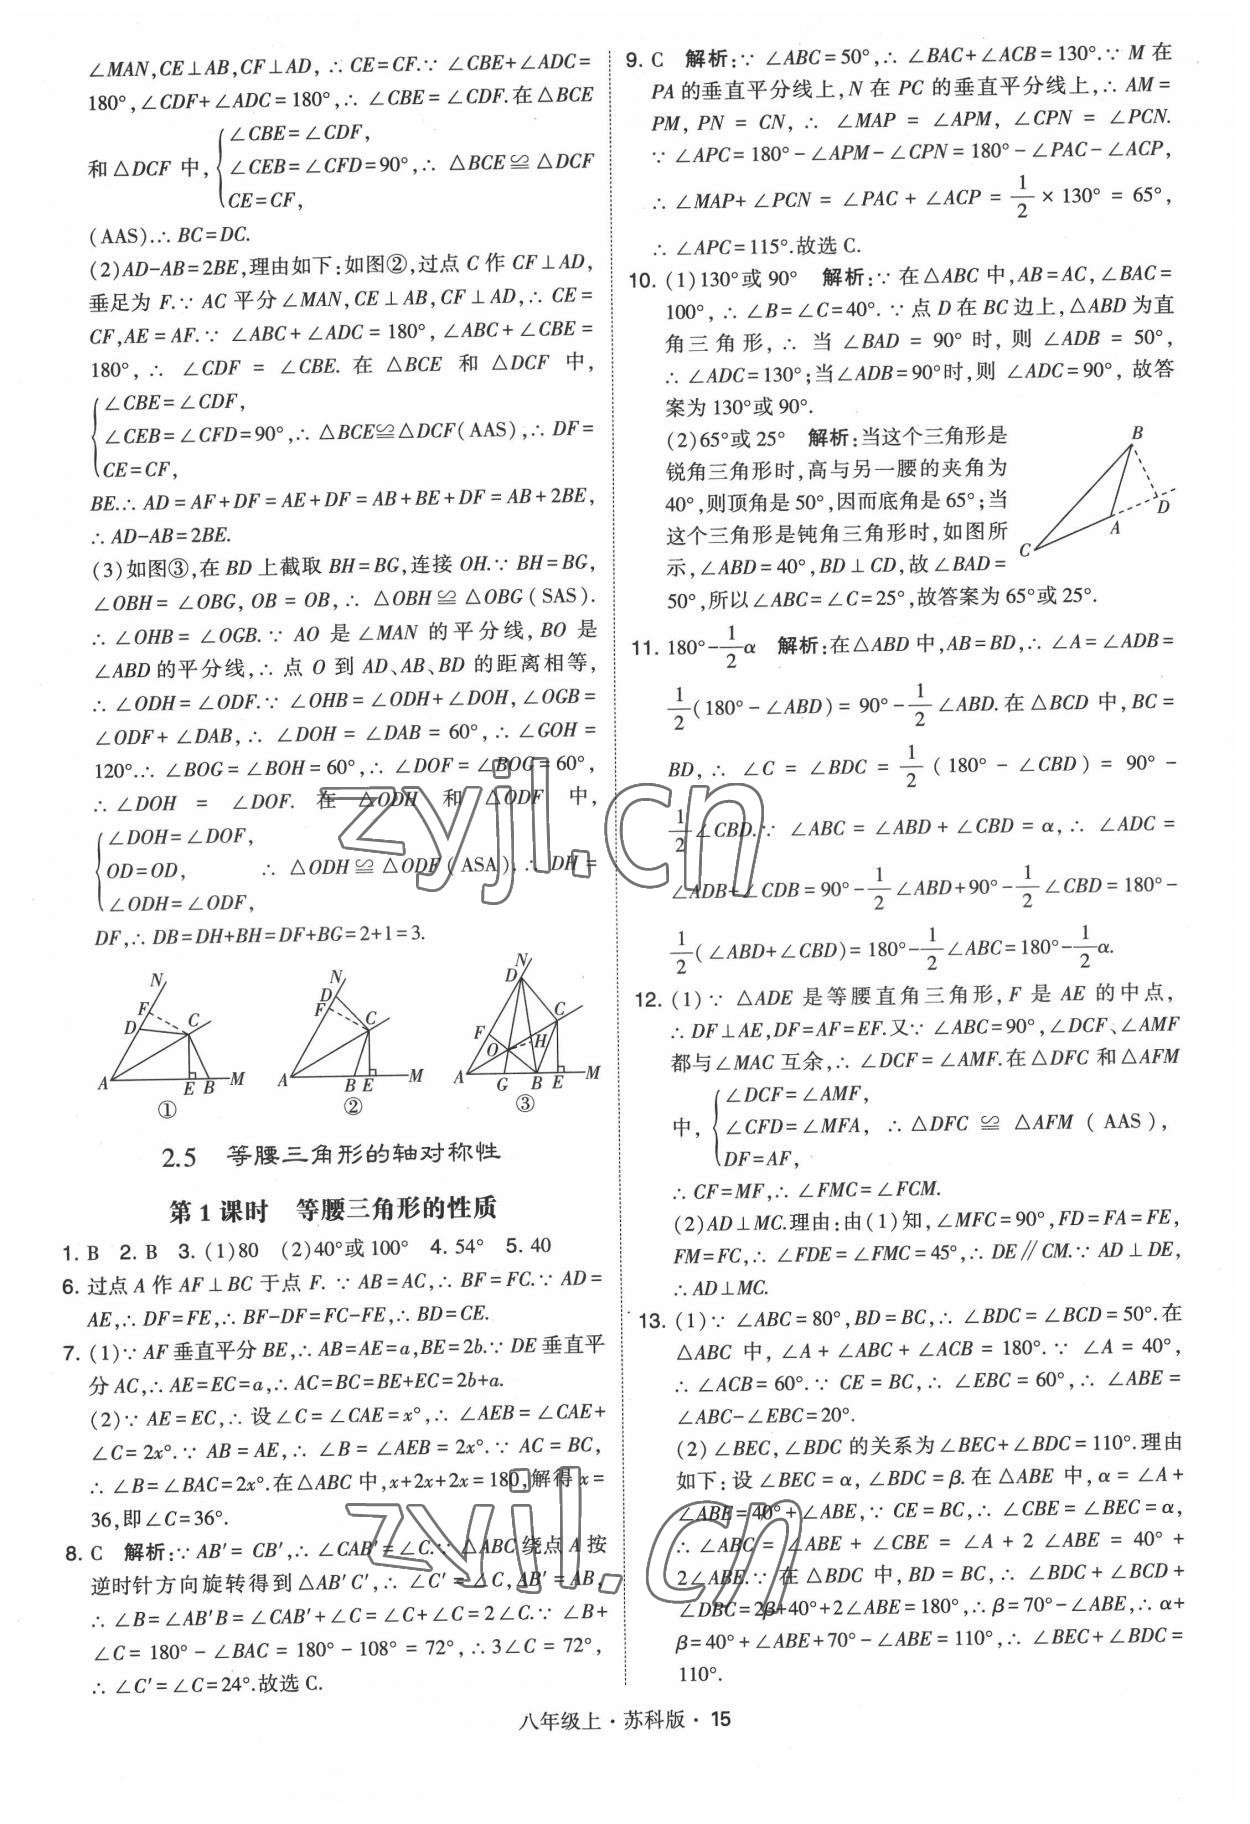 ∠MAN,CE⊥AB,CF⊥AD,∴CE=CF.∵∠CBE+∠ADC=
180°,∠CDF+∠ADC=180°,∴∠CBE=∠CDF.在△BCE
∠CBE=∠CDF,
和△DCF中,{∠CEB=∠CFD=90°,∴△BCE≌△DCF
CE=CF,
(AAS).∴BC=DC.
(2)AD-AB=2BE,理由如下:如图②,过点C作CF⊥AD,
垂足为F.∵AC平分∠MAN,CE⊥AB,CF⊥AD,∴CE=
CF,AE=AF.∵∠ABC+∠ADC=180°,∠ABC+∠CBE=
180°,∴∠CDF=∠CBE.在△BCE和△DCF中,
∠CBE=∠CDF,
{∠CEB=∠CFD=90°,∴△BCE≌△DCF(AAS),∴DF=
CE=CF,
BE.∴AD=AF+DF=AE+DF=AB+BE+DF=AB+2BE,
∴AD-AB=2BE.
(3)如图③,在BD上截取BH=BG,连接OH.∵BH=BG,
∠OBH=∠OBG,OB=OB,∴△OBH≌△OBG(SAS).
∴∠OHB=∠OGB.∵AO是∠MAN的平分线,BO是
∠ABD的平分线,∴点O到AD、AB、BD的距离相等,
∴∠ODH=∠ODF.∵∠OHB=∠ODH+∠DOH,∠OGB=
∠ODF+∠DAB,∴∠DOH=∠DAB=60°,∴∠GOH=
120°.∴∠BOG=∠BOH=60°,∴∠DOF=∠BOG=60°,
∴∠DOH=∠DOF.在△ODH和△ODF中,
∠DOH=∠DOF,
{OD=OD, ∴△ODH≌△ODF(ASA).∴DH=
∠ODH=∠ODF,
DF,∴DB=DH+BH=DF+BG=2+1=3.
N F D C A E B M ①
N D F C A B E M ②
N D F C O H A G B E M ③
2.5 等腰三角形的轴对称性
第1课时 等腰三角形的性质
1. B 2. B 3. (1)80 (2)40°或100° 4. 54° 5. 40
6. 过点A作AF⊥BC于点F.∵AB=AC,∴BF=FC.∵AD=
AE,∴DF=FE,∴BF-DF=FC-FE,∴BD=CE.
7. (1)∵AF垂直平分BE,∴AB=AE=a,BE=2b.∵DE垂直平
分AC,∴AE=EC=a,∴AC=BC=BE+EC=2b+a.
(2)∵AE=EC,∴设∠C=∠CAE=x°,∴∠AEB=∠CAE+
∠C=2x°.∵AB=AE,∴∠B=∠AEB=2x°.∵AC=BC,
∴∠B=∠BAC=2x°.在△ABC中,x+2x+2x=180,解得x=
36,即∠C=36°.
8. C 解析:∵AB′=CB′,∴∠CAB′=∠C.∵△ABC绕点A按
逆时针方向旋转得到△AB′C′,∴∠C′=∠C,AB′=AB,
∴∠B=∠AB′B=∠CAB′+∠C=∠C+∠C=2∠C.∵∠B+
∠C=180°-∠BAC=180°-108°=72°,∴3∠C=72°,
∴∠C′=∠C=24°.故选C.
9. C 解析:∵∠ABC=50°,∴∠BAC+∠ACB=130°.∵M在
PA的垂直平分线上,N在PC的垂直平分线上,∴AM=
PM,PN=CN,∴∠MAP=∠APM,∠CPN=∠PCN.
∵∠APC=180°-∠APM-∠CPN=180°-∠PAC-∠ACP,
∴∠MAP+∠PCN=∠PAC+∠ACP=1/2×130°=65°,
∴∠APC=115°.故选C.
10. (1)130°或90° 解析:∵在△ABC中,AB=AC,∠BAC=
100°,∴∠B=∠C=40°.∵点D在BC边上,△ABD为直
角三角形,∴当∠BAD=90°时,则∠ADB=50°,
∴∠ADC=130°;当∠ADB=90°时,则∠ADC=90°,故答
案为130°或90°.
(2)65°或25° 解析:当这个三角形是
锐角三角形时,高与另一腰的夹角为
40°,则顶角是50°,因而底角是65°;当
这个三角形是钝角三角形时,如图所
示,∠ABD=40°,BD⊥CD,故∠BAD=
50°,所以∠ABC=∠C=25°,故答案为65°或25°.
B D A C
11. 180°-1/2α 解析:在△ABD中,AB=BD,∴∠A=∠ADB=
1/2(180°-∠ABD)=90°-1/2∠ABD.在△BCD中,BC=
BD,∴∠C=∠BDC=1/2(180°-∠CBD)=90°-
1/2∠CBD.∵∠ABC=∠ABD+∠CBD=α,∴∠ADC=
∠ADB+∠CDB=90°-1/2∠ABD+90°-1/2∠CBD=180°-
1/2(∠ABD+∠CBD)=180°-1/2∠ABC=180°-1/2α.
12. (1)∵△ADE是等腰直角三角形,F是AE的中点,
∴DF⊥AE,DF=AF=EF.又∵∠ABC=90°,∠DCF、∠AMF
都与∠MAC互余,∴∠DCF=∠AMF.在△DFC和△AFM
∠DCF=∠AMF,
中,{∠CFD=∠MFA,∴△DFC≌△AFM(AAS),
DF=AF,
∴CF=MF,∴∠FMC=∠FCM.
(2)AD⊥MC.理由:由(1)知,∠MFC=90°,FD=FA=FE,
FM=FC,∴∠FDE=∠FMC=45°,∴DE∥CM.∵AD⊥DE,
∴AD⊥MC.
13. (1)∵∠ABC=80°,BD=BC,∴∠BDC=∠BCD=50°.在
△ABC中,∠A+∠ABC+∠ACB=180°.∵∠A=40°,
∴∠ACB=60°.∵CE=BC,∴∠EBC=60°,∴∠ABE=
∠ABC-∠EBC=20°.
(2)∠BEC,∠BDC的关系为∠BEC+∠BDC=110°.理由
如下:设∠BEC=α,∠BDC=β.在△ABE中,α=∠A+
∠ABE=40°+∠ABE,∵CE=BC,∴∠CBE=∠BEC=α,
∴∠ABC=∠ABE+∠CBE=∠A+2∠ABE=40°+
2∠ABE.∵在△BDC中,BD=BC,∴∠BDC+∠BCD+
∠DBC=2β+40°+2∠ABE=180°,∴β=70°-∠ABE,∴α+
β=40°+∠ABE+70°-∠ABE=110°,∴∠BEC+∠BDC=
110°.
八年级上·苏科版·15
zyjl.cn
zyjl.cn